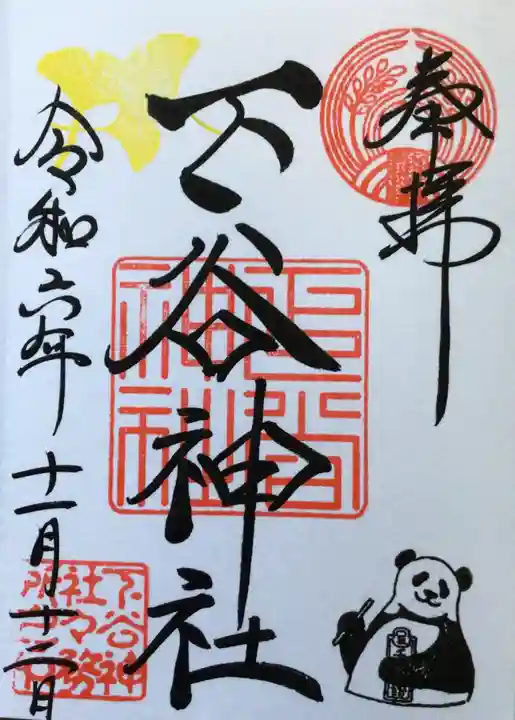 奉拝
下谷神社
令和六年十一月十二日
下谷神
社々務
所之印